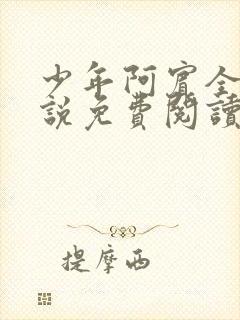 少年阿賓全
說免費閱讀
提摩西